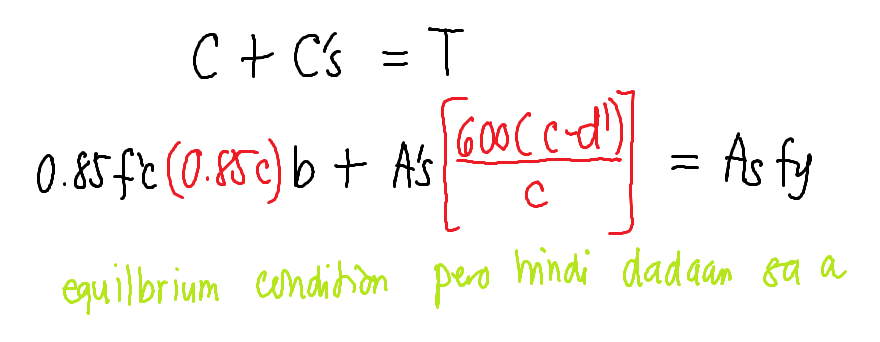 C + C's = T
0.85f'c(0.85c)b + A's[600(c-d')/c] = Asfy
equilbrium condition pero hindi dadaan sa a